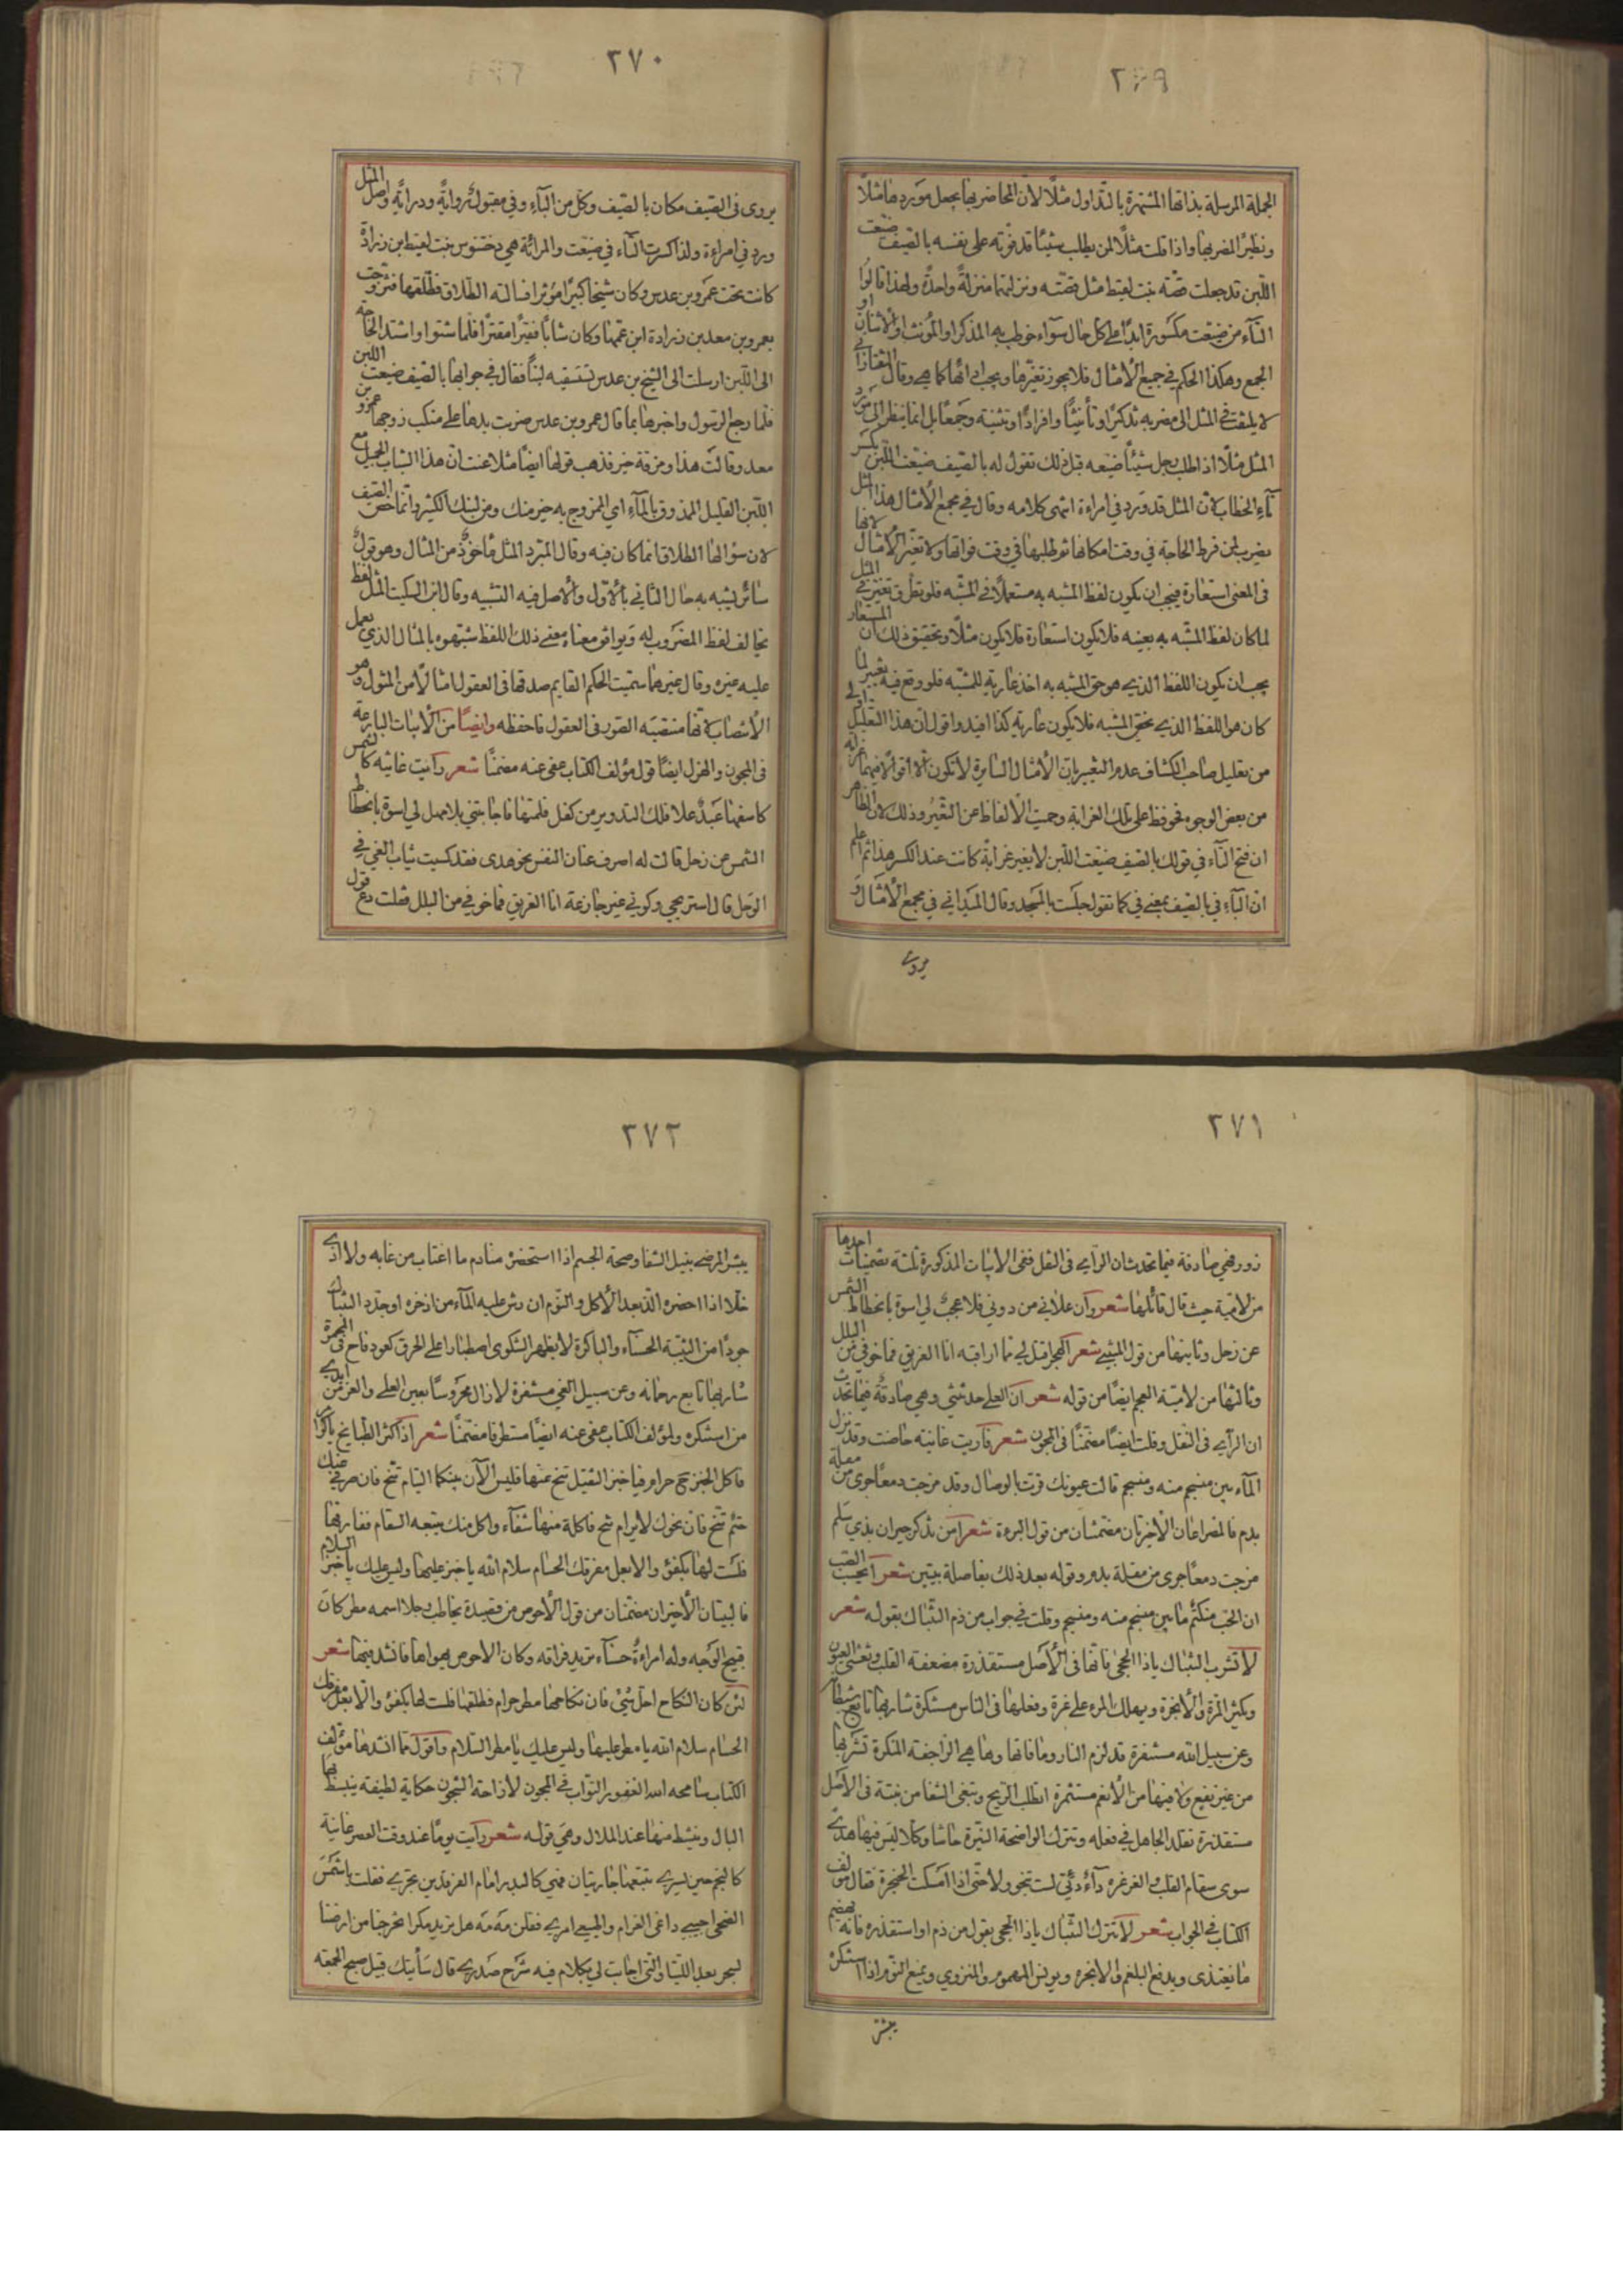 ٢٦٩
الجملة المرسلة بذاتها المشتهرة بالتداول مثلًا لان المحاضر بها يجعل موردها مثلًا
ونظيرًا لمضربها واذا قلت مثلًا لمن يطلب شيئًا قد فوّته على نفسه بالصيف ضيّعت
اللبن قد جعلت قصّة بنت لقيط مثل قصّته ونزلتهما منزلةً واحدةً ولهذا قالوا
التاء من ضيّعت مكسورة ابدًا على كل حال سواء خوطب به المذكر او المؤنث او الاثنان او
الجمع وهكذا الحكم في جميع الأمثال فلا يجوز تغيّرها ويجب ادائها كما هي وقال التفتازاني
لا يلتفت في المثل الى مضربه تذكيرًا وتأنيثًا وافرادًا وتثنية وجمعًا بل انما ينظر الى مورد
المثل مثلًا اذا طلب رجل شيئًا ضيعه قبل ذلك تقول له بالصيف ضيّعت اللبن بكسر
تاء الخطاب لأن المثل قد ورد في امراءة انتهى كلامه وقال في مجمع الأمثال هذا المثل
يضرب لمن فرط الحاجة في وقت امكانها ثم طلبها في وقت فواتها ولا تغير الأمثال لانها
في المعنى استعارة فيجب ان يكون لفظ المشبه به مستعملًا في المشبّه فلو تطرق تغير في المثل
لما كان لفظ المشبّه به بعينه فلا يكون استعارة فلا يكون مثلًا وتحقيق ذلك أن المستعار
يجب ان يكون اللفظ الذي هو حق المشبه به اخذ عارية للمشبّه فلو وقع فيه تغيير لما
كان هو اللفظ الذي يخصّ المشبه فلا يكون عارية كذا افيد واقول ان هذا التعليل اولى
من تعليل صاحب الكشاف عدم التغيير بان الأمثال السائرة لا تكون الا اقوالًا فيها غرابة
من بعض الوجوه فحوفظ على تلك الغرابة وحميت الألفاظ عن التغيّر وذلك لان الظاهر
ان فتح التاء في قولك بالصيف ضيّعت اللبن لا يغير غرابة كانت عند الكسر هذا ثم اعلم
ان الباء في بالصيف بمعنى في كما تقول جلست بالمسجد وقال الميداني في مجمع الأمثال و
يروى
٢٧٠
يروى في الصيف مكان بالصيف وكل من الباء وفي مقبولٌ روايةً ودرايةً واصل المثل
ورد في امراءة ولذا كسرت التاء في ضيّعت والمرائة هي دختنوس بنت لقيط ابن زرارة
كانت تحت عمرو بن عدس وكان شيخًا كبيرًا مؤثرا فسالته الطلاق فطلّقها فتزوّجت
بعمرو بن معد بن زرارة ابن عمّها وكان شابًا فقيرًا مقترًا فلما شتوا واشتد الحاجة
الى اللبن ارسلت الى الشيخ بن عدس تستسقيه لبنًا فقال في جوابها بالصيف ضيعت اللبن
فلما رجع الرسول واخبرها بما قال عمرو بن عدس ضربت يدها على منكب زوجها عمرو بن
معد وقالت هذا ومزقة خير فذهب قولها ايضًا مثلا عنت ان هذا الشاب الجميل مع
اللبن القليل الممذوق بالماء اي الممزوج به خير منك ومن لبنك الكثير وانما خص الصيف
لان سؤالها الطلاق انما كان فيه وقال المبّرد المثل مأخوذٌ من المثال وهو قولٌ
سائر يشبه به حال الثاني بالأول والأصل فيه التشبيه وقال ابن السكيت المثل لفظ
يخالف لفظ المضروب له ويوافق معناه معنى ذلك اللفظ شبّهوه بالمثال الذي يعمل
عليه غيره وقال غيرهما سمّيت الحكم القايم صدقها في العقول امثالًا من المثول و هو
الأنتصاب لأنها منتصبة الصور في العقول فاحفظه وايضًا من الأبيات البارعة
في المجون والهزل ايضًا قول مؤلف الكتاب عفى عنه مضمنًّا شعر رايت غانيه كالشمس
كاسفها عبدٌ علا فلك التدوير من كفل فلمتها فاجابتني بلا مهل لي اسوة بانحطاط
الشمس عن زحل قالت له اصرف عنان النفس نحو هدى فقد كسيت ثياب الغي في
الوحل قال استريحي وكوني غير جازعة انا الغريق فما خوفي من البلل فقلت دع قول
٢٧١
زور فهي صادقة فيما تحدث ان الراي في النقل ففي الابيات المذكورة ثلثة تضمينات احدها
من لامية حيث قال قائلها شعر وان علاني من دوني فلا عجبٌ لي اسوة بانحطاط الشمس
عن زحل وثانيها من قول المتنبي شعر الهجر اقتل لي مما اراقبه انا الغريق فما خوفي من البلل
وثالثها من لامية العجم ايضًا من قوله شعر ان العلى حدثتني وهي صادقةٌ فيما تحدّث
ان الراي في النقل وقلت ايضًا مضمّنًا في المجون شعر فاريت غانية حاضت وقد نزل
الماء بين منسجم منه ومنسجم قالت عيونك قرت بالوصال وقد مزجت دمعًا جرى من مقلة
بدم فالمصراعان الأخيران مضمنتان من قول البردة شعر أمن تذكر جيران بذي سلم
مزجت دمعًا جرى من مقلة بدم وقوله بعد ذلك بفاصلة بيتين شعر ايحسب الصب
ان الحب منكتم ما بين منسجم منه ومنسجم وقلت في جواب من ذم التنباك بقوله شعر
لا تشرب التنباك ياذا الحجى فانها في الأصل مستقذرة مضعفة القلب وتغشى العيون
ويكثر المرّة والأبخرة ويهلك المرء على غرة وفعلها في الناس مسكرة شاربها تابع شيطانه
وعن سبيل الله مستنفرة قد لزم النار وما فاتها وها هي الراجفة المنكرة تشربها
من غير نفع ولا فيها من الأنعم مستثمرة اتطلب الريح وتبغى الشفا من نبتة في الأصل
مستقذرة تقلد الجاهل في فعله وتترك الواضحة النيّرة حاشا وكلا ليس فيها هدى
سوى سقام القلب والغرغرة داءٌ دفيّ لست تنجو ولا حتى اذا امسكت الحنجرة فقال مؤلف
الكتاب في الجواب شعر لا تترك التنباك ياذا الحجى بقول من ذم او استقذره فانه يهضم
ما يغتذى ويدفع البلغم والابخره ويونس المهموم والمنزوي ويمنع النوم اذا استنكره
يبشر
٢٧٢
يبشر المرضى بنيل الشفا وصحة الجسم اذا استحضره منادم ما اغتاب من غابه ولا اذى
خلا اذا احضره الذ بعد الأكل والنوم ان رش عليه الماء من ازخره او جدد التنباك
جودًا من الشيبة الحسناء والباكرة لا يظهر الشكوى اصطبارا على الحرق كعود فاح في المجمرة
شاربها تابع رحمانه وعن سبيل الغي مستنفرة لا زال محروسًا بعين العلى والعز من ايدي
من استنكره ولمؤلف الكتاب عفى عنه ايضًا مستطرفا مضمّنًا شعر اذا كثر الطبايخ ياكرا
فاكل الخبز حمٌ حرام فيا خبز الثقيل تنح عنها فليس الآن بينكما التيام تنح فان صرفي عنك
حتم تنح فان نحوك لا يرام تنح فاكلة منها شفاء واكل منك يتبعه السقام ففارقها
فلست لها بكفؤ والا يعل مفرقك الحسام سلام الله يا خبز عليها وليس عليك يا خبز السلام
فالبيتان الأخيران مضمّنان من قول الأحوص من قصيدة يخاطب رجلا اسمه مطر كان
قبيح الوجه وله امراءة حسناء تريد فراقه وكان الاحوص يهواها فانشد فيها شعر
لئن كان النكاح احل شيٌ فان نكاحها مطر حرام فطلقها فلست لها بكفؤ والا يعل مفرقك
الحسام سلام الله يا مطر عليها وليس عليك يا مطر السلام واقول مما انشدها مؤلف
الكتاب سامحه الله الغفور التواب في المجون لأزاحة الشجون حكاية لطيفة ينبسط بها
البال وينشط منها عند الملال وهي قوله شعر رأيت يومًا عند وقت العصر غانية
كالنجم حين يسري تتبعها جاريتان فهي كالبدر امام الفرقدين يجري فقلت يا شمس
الضحى اجيبي داعى الغرام واطيعي امري فقلن مه مه هل تريد مكرا تخرجنا من ارضنا
لسحر بعد اللتيا والتي اجابت لي بكلام فيه شرح صدري قال سأيتك قبل صبح الجمعة